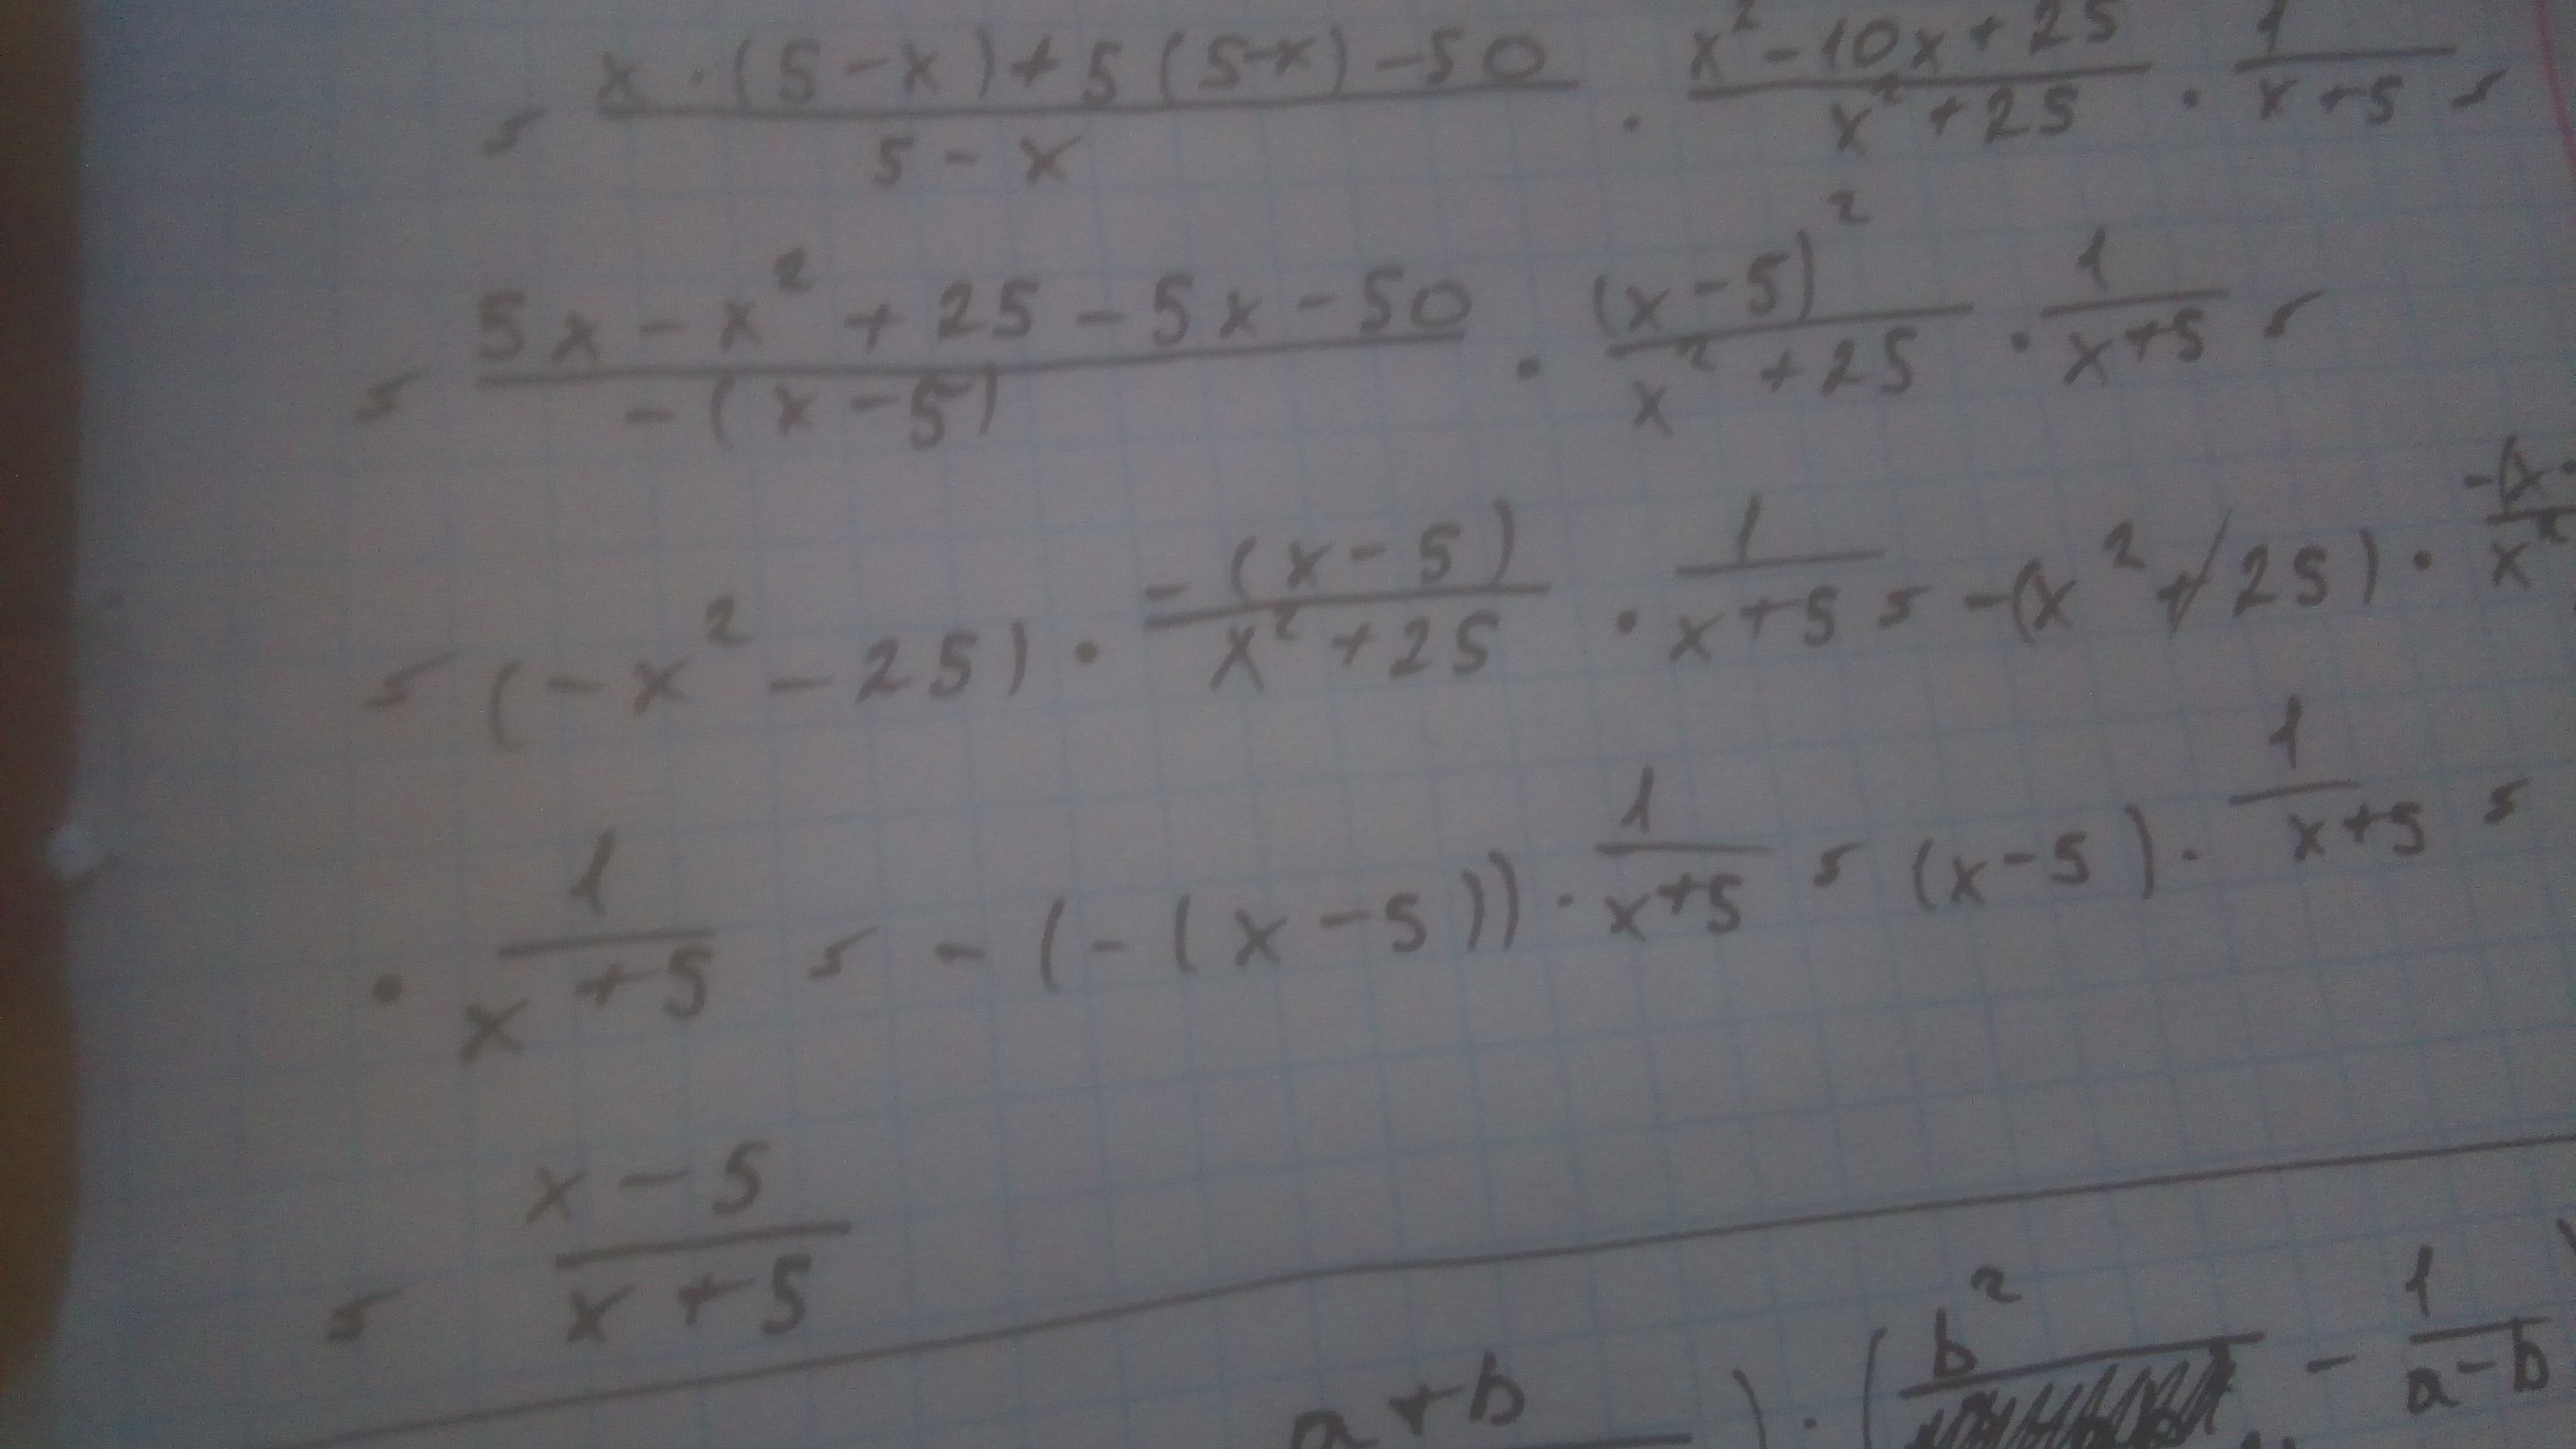 = x · (5 - x) + 5 (5 - x) - 50 / 5 - x · x² - 10x + 25 / x² + 25 · 1 / x + 5 =
= 5x - x² + 25 - 5x - 50 / -(x - 5) · (x - 5)² / x² + 25 · 1 / x + 5 =
= (-x² - 25) · -(x - 5) / x² + 25 · 1 / x + 5 = -(x² + 25) · -(x / x²
· 1 / x + 5 = -(-(x - 5)) · 1 / x + 5 = (x - 5) · 1 / x + 5 =
= x - 5 / x + 5
a + b ) · ( b² / - 1 / a - b